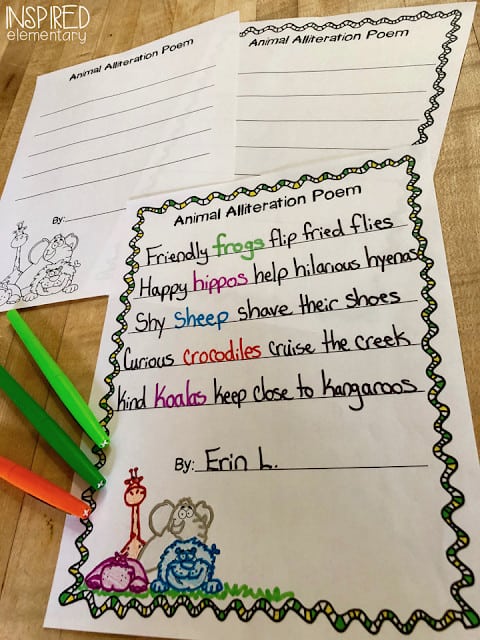 INSPIRED
elementary
Animal Alliteration Poem
By:
Animal Alliteration Poem
Animal Alliteration Poem
Friendly frogs flip fried flies
Happy hippos help hilarious hyenas
Shy sheep shave their shoes
Curious crocodiles cruise the creek
Kind Koalas keep close to kangaroos
By: Erin L.